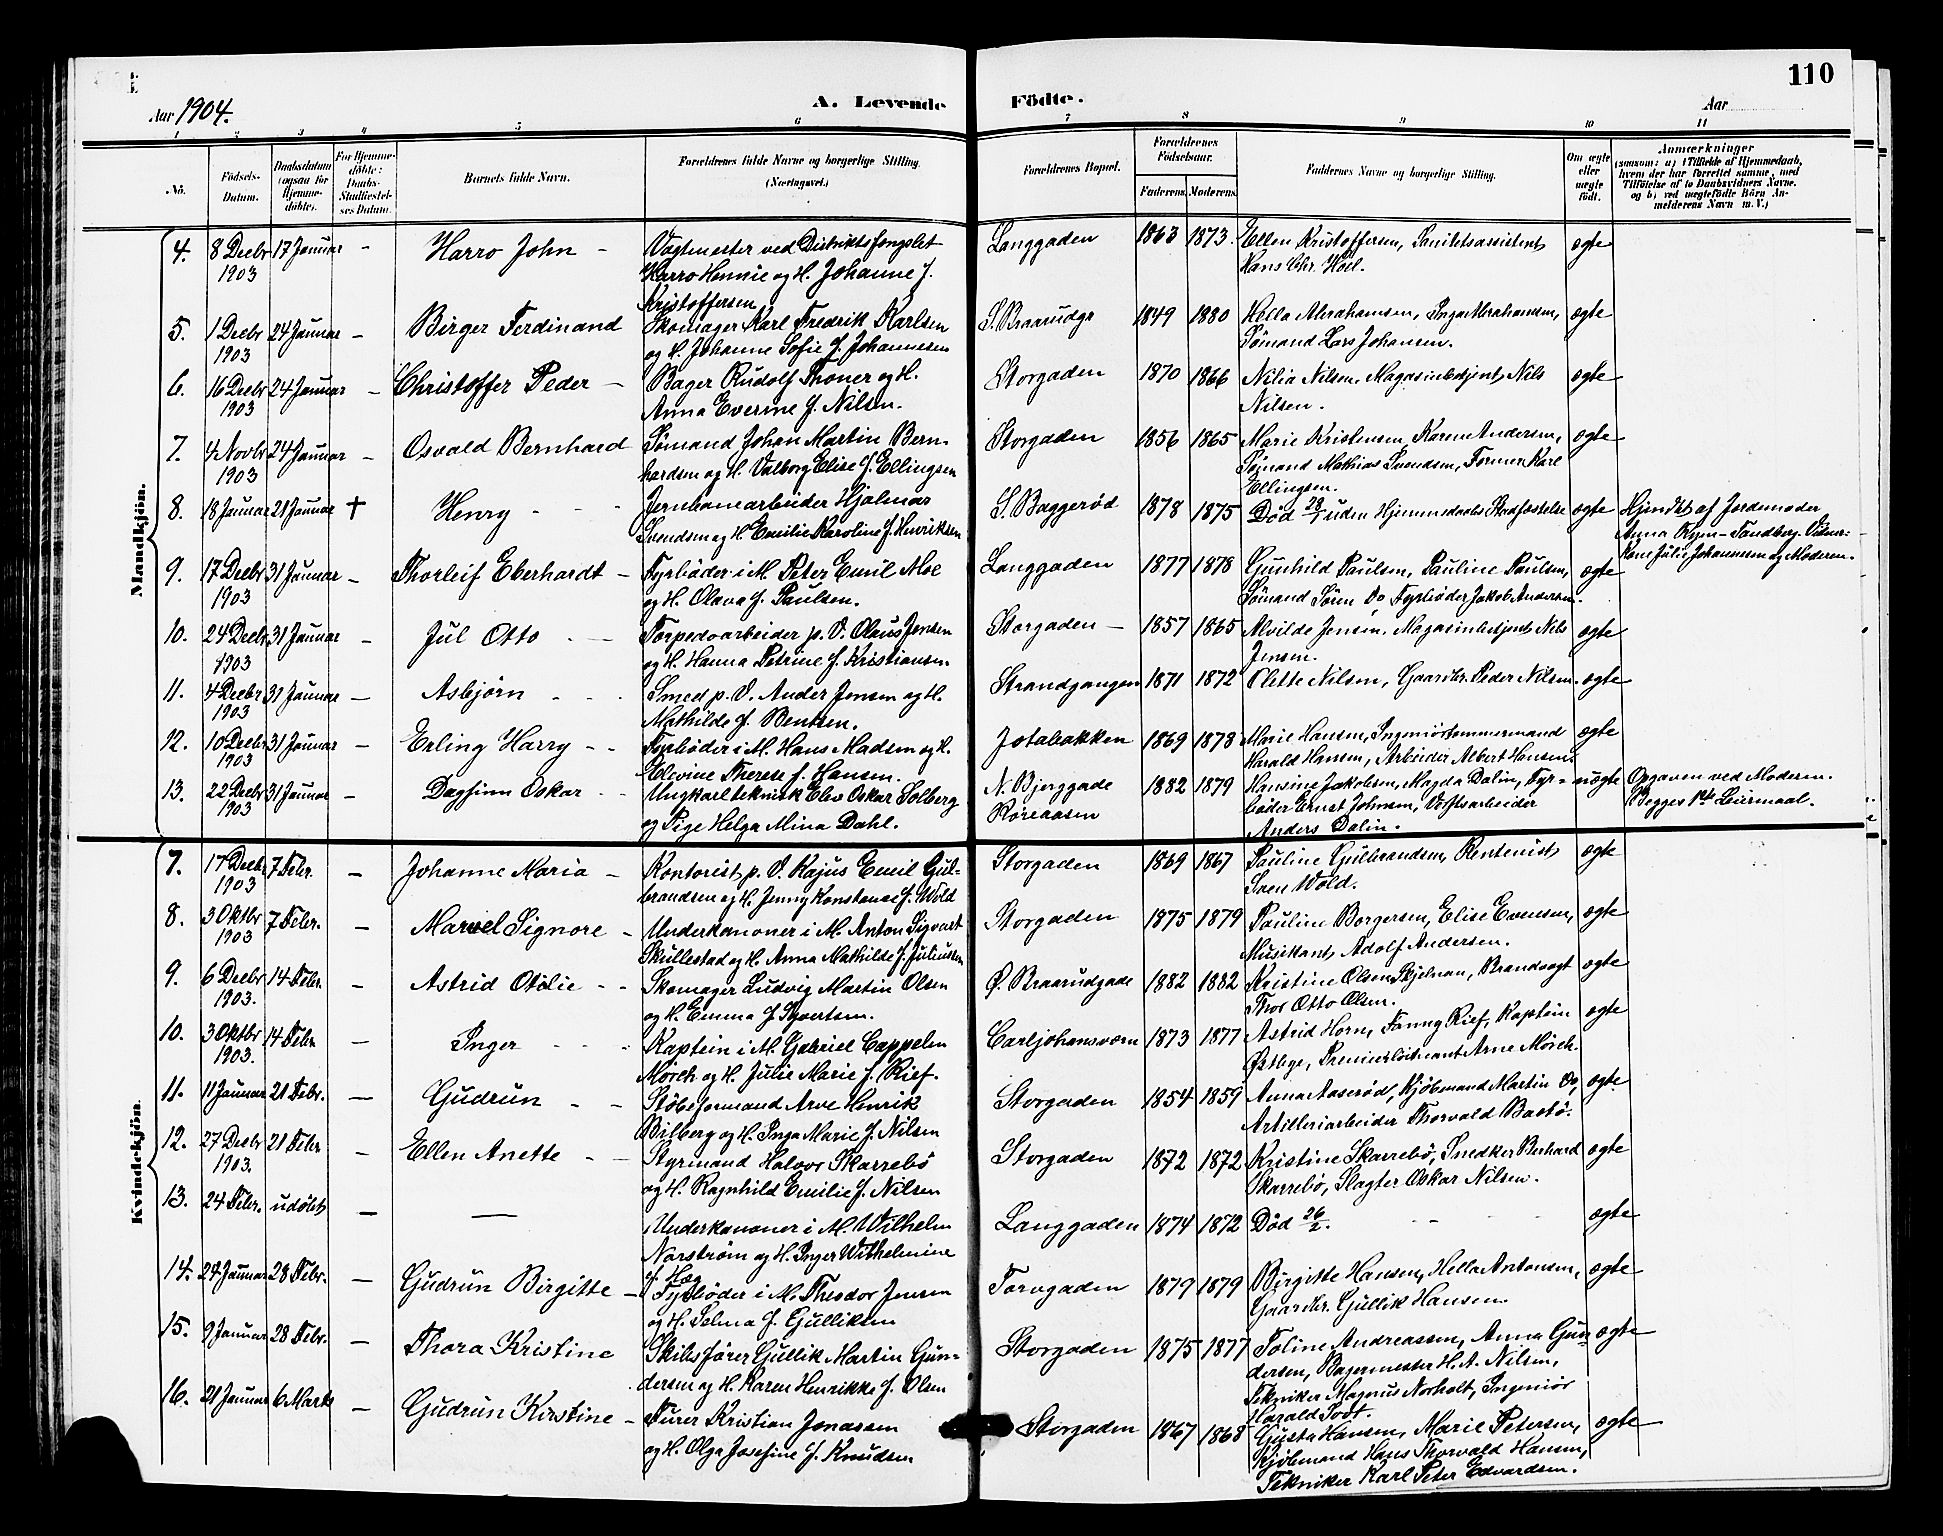 110
Aar 1904.
A. Levende Födte.
Aar
1 2 3 4 5 6 7 8 9 10 11
No.
Födsels-Datum.
Daabsdatum (ogsaa for Hjemme-döbte).
For Hjemme-döbte: Daabs-Stadfæstel-ses Datum.
Barnets fulde Navn.
Forældrenes fulde Navne og borgerlige Stilling. (Næringsvei.)
Forældrenes Bopæl.
Forældrenes Födselsaar. Faderens. Moderens.
Faddernes Navne og borgerlige Stilling.
Om ægte eller uægte födt.
Anmærkninger (saasom: a) i Tilfælde af Hjemmedaab, hvem der har forrettet samme, med Tilföielse af to Daabsvidners Navne, og b) ved uægtefödte Börn An-melderens Navn m. V.)
Mandkjön.
4. 8 Decbr 1903 17 Januar - Harro John - Vagtmester ved Distriktsfengslet Harro Hennie og H. Johanne f. Kristoffersen Langgaden 1863 1873. Ellen Kristoffersen, Sanitetsassistent Hans Chr. Hoel. ægte
5. 1 Decbr 1903 24 Januar - Birger Ferdinand Skomager Karl Fredrik Karlsen og H. Johanne Sofie f. Johannesen S. Braarudgr 1849 1880 Hella Abrahamsen, Inga Abrahamsen, Sømand Lars Johansen. ægte
6. 16 Decbr 1903 24 Januar - Christoffer Peder - Bager Rudolf Thoner og H. Anna Everine f. Nilsen. Storgaden 1870 1866 Nilia Nilsen, Magasinbetjent Nils Nilsen. ægte
7. 4 Novbr 1903 24 Januar - Osvald Bernhard Sømand Johan Martin Bern-hardsen og H. Valborg Elise f. Ellingsen Storgaden 1856 1865 Marie Kristensen, Karen Andersen, Sømand Mathias Svendsen, Former Karl Ellingsen. ægte
8. 18 Januar 21 Januar † Henry - - - Jernbanearbeider Hjalmar Svendsen og H Emilie Karoline f. Henriksen S. Baggerød 1878 1875 Død 28/1 uden Hjemmedaabs Stadfæstelse ægte Hjemdøbt af Jordemoder Anna Rym-Tandberg. Vidner: Kone Julie Johannesen og Moderen.
9. 17 Decbr 1903 31 Januar - Thorleif Eberhardt - Fyrbøder i M. Peter Emil Moe og H. Olava f. Paulsen. Langgaden 1877 1878 Gunhild Paulsen, Pauline Paulsen, Sømand Søren Do, Fyrbøder Jakob Andersen. ægte
10. 24 Decbr 1903 31 Januar - Jul Otto - - Torpedoarbeider p. V. Olaus Jensen og H. Hanna Petrine f. Kristiansen Storgaden - 1857 1865 Alvilde Jensen, Magasinbetjent Nils Jensen. ægte
11. 4 Decbr 1903 31 Januar - Asbjørn - - - Smed p. V. Ander Jensen og H. Mathilde f. Bentsen. Strandgangen 1871 1872 Olette Nilsen, Gaardbr. Peder Nilsen. ægte
12. 10 Decbr 1903 31 Januar - Erling Harry - - Fyrbøder i M. Hans Madsen og H. Elevine Therese f. Hansen. Jotabakken 1869 1878 Marie Hansen, Ingeniørtømmermand Harald Hansen, Arbeider Albert Hansen. ægte
13. 22 Decbr 1903 31 Januar - Dagfinn Oskar - - Ungkarl teknisk Elev Oskar Solberg og Pige Helga Mina Dahl. N. Bjerggade Røreaasen 1882 1879 Hansine Jakobsen, Magda Dalin, Fyr-bøder Ernst Johnsen, Verftsarbeider Anders Dalin. uægte Opgaven ved Moderen. Begges 1ste Leiermaal.
Kvindekjön.
7. 17 Decbr 1903 7 Febr. - Johanne Maria - Kontorist p. V. Kajus Emil Gul-brandsen og H. Jenny Konstanse f. Wold Storgaden 1869 1867 Pauline Gulbrandsen, Rentenist Sven Wold. ægte
8. 3 Oktbr 1903 7 Febr. - Marvel Signore - Underkanoner i M. Anton Sigvart Skullestad og H. Anna Mathilde f. Juliussen Storgaden 1875 1879 Pauline Borgersen, Elise Evensen, Musikant Adolf Andersen. ægte
9. 6 Decbr 1903. 14 Febr. - Astrid Otolie - - Skomager Ludvig Martin Olsen og H. Emma f. Syvertsen. Ø. Braarudgade 1882 1882 Kristine Olsen Skjelvan, Brandvagt Thor Otto Olsen. ægte
10. 3 Oktbr 1903. 14 Febr. - Inger - - - Kaptein i M. Gabriel Cappelen Mørch og H. Julie Marie f. Rief. Carljohansværn 1873 1877 Astrid Horn, Fanny Rief, Kaptein Østbye, Premierløitnant Arne Mørch. ægte
11. 11 Januar 21 Febr. - Gudrun - - Støbeformand Arve Henrik Bilberg og H. Inga Marie f. Nilsen Storgaden 1854 1859 Anna Aaserød, Kjøbmand Martin Do, Artilleriarbeider Thorvald Bastø. ægte
12. 27 Decbr 1903. 21 Febr. - Ellen Anette - - Styrmand Halvor Skarrebø og H. Ragnhild Emilie f. Nilsen Storgaden 1872 1872 Kristine Skarrebø, Snedker Berhard Skarrebø, Slagter Oskar Nilsen. ægte
13. 24 Febr. udøbt - - Underkanoner i M. Wilhelm Norstrøm og H. Inger Wilhelmine f. Hæg Langgaden 1874 1872 Død 26/2. ægte
14. 24 Januar 28 Febr. - Gudrun Birgitte - Fyrbøder i M. Theodor Jensen og H. Selma f. Gulliksen Torvgaden 1879 1879 Birgitte Hansen, Hella Antonsen, Gaardbr. Gullik Hansen. ægte
15. 9 Januar 28 Febr. - Thora Kristine Skibsfører Gullik Martin Gun-dersen og H. Karen Henrikke f. Olsen Storgaden 1875 1877 Toline Andreassen, Anna Gun-dersen, Bagermester H. A. Nilsen, Tekniker Magnus Norholt, Ingeniør Harald Todt. ægte
16. 21 Januar 6 Marts - Gudrun Kirstine - Furer Kristian Jonassen og H. Olga Josefine f. Knudsen Storgaden 1867 1868 Gusta Hansen, Marie Petersen, Kjøbmand Hans Thorvald Hansen, Tekniker Karl Peter Edvardsen. ægte